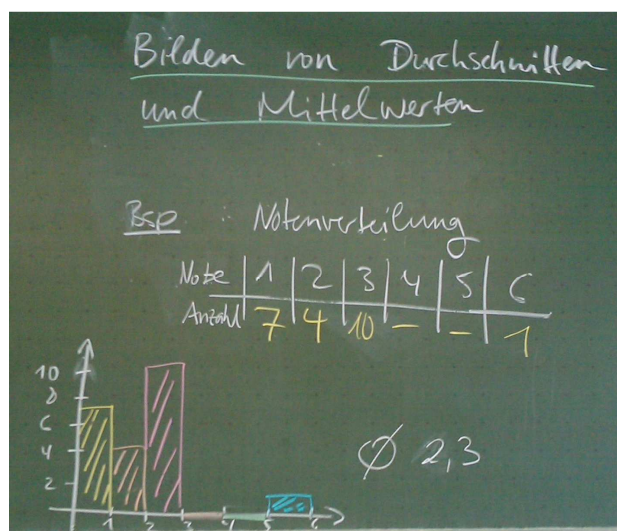 Bilden von Durchschnitten
und Mittelwerten
Bsp : Notenverteilung
Note 1 2 3 4 5 6
Anzahl 7 4 10 – – 1
10
8
6
4
2
Ø 2,3
1 2 3 4 5 6